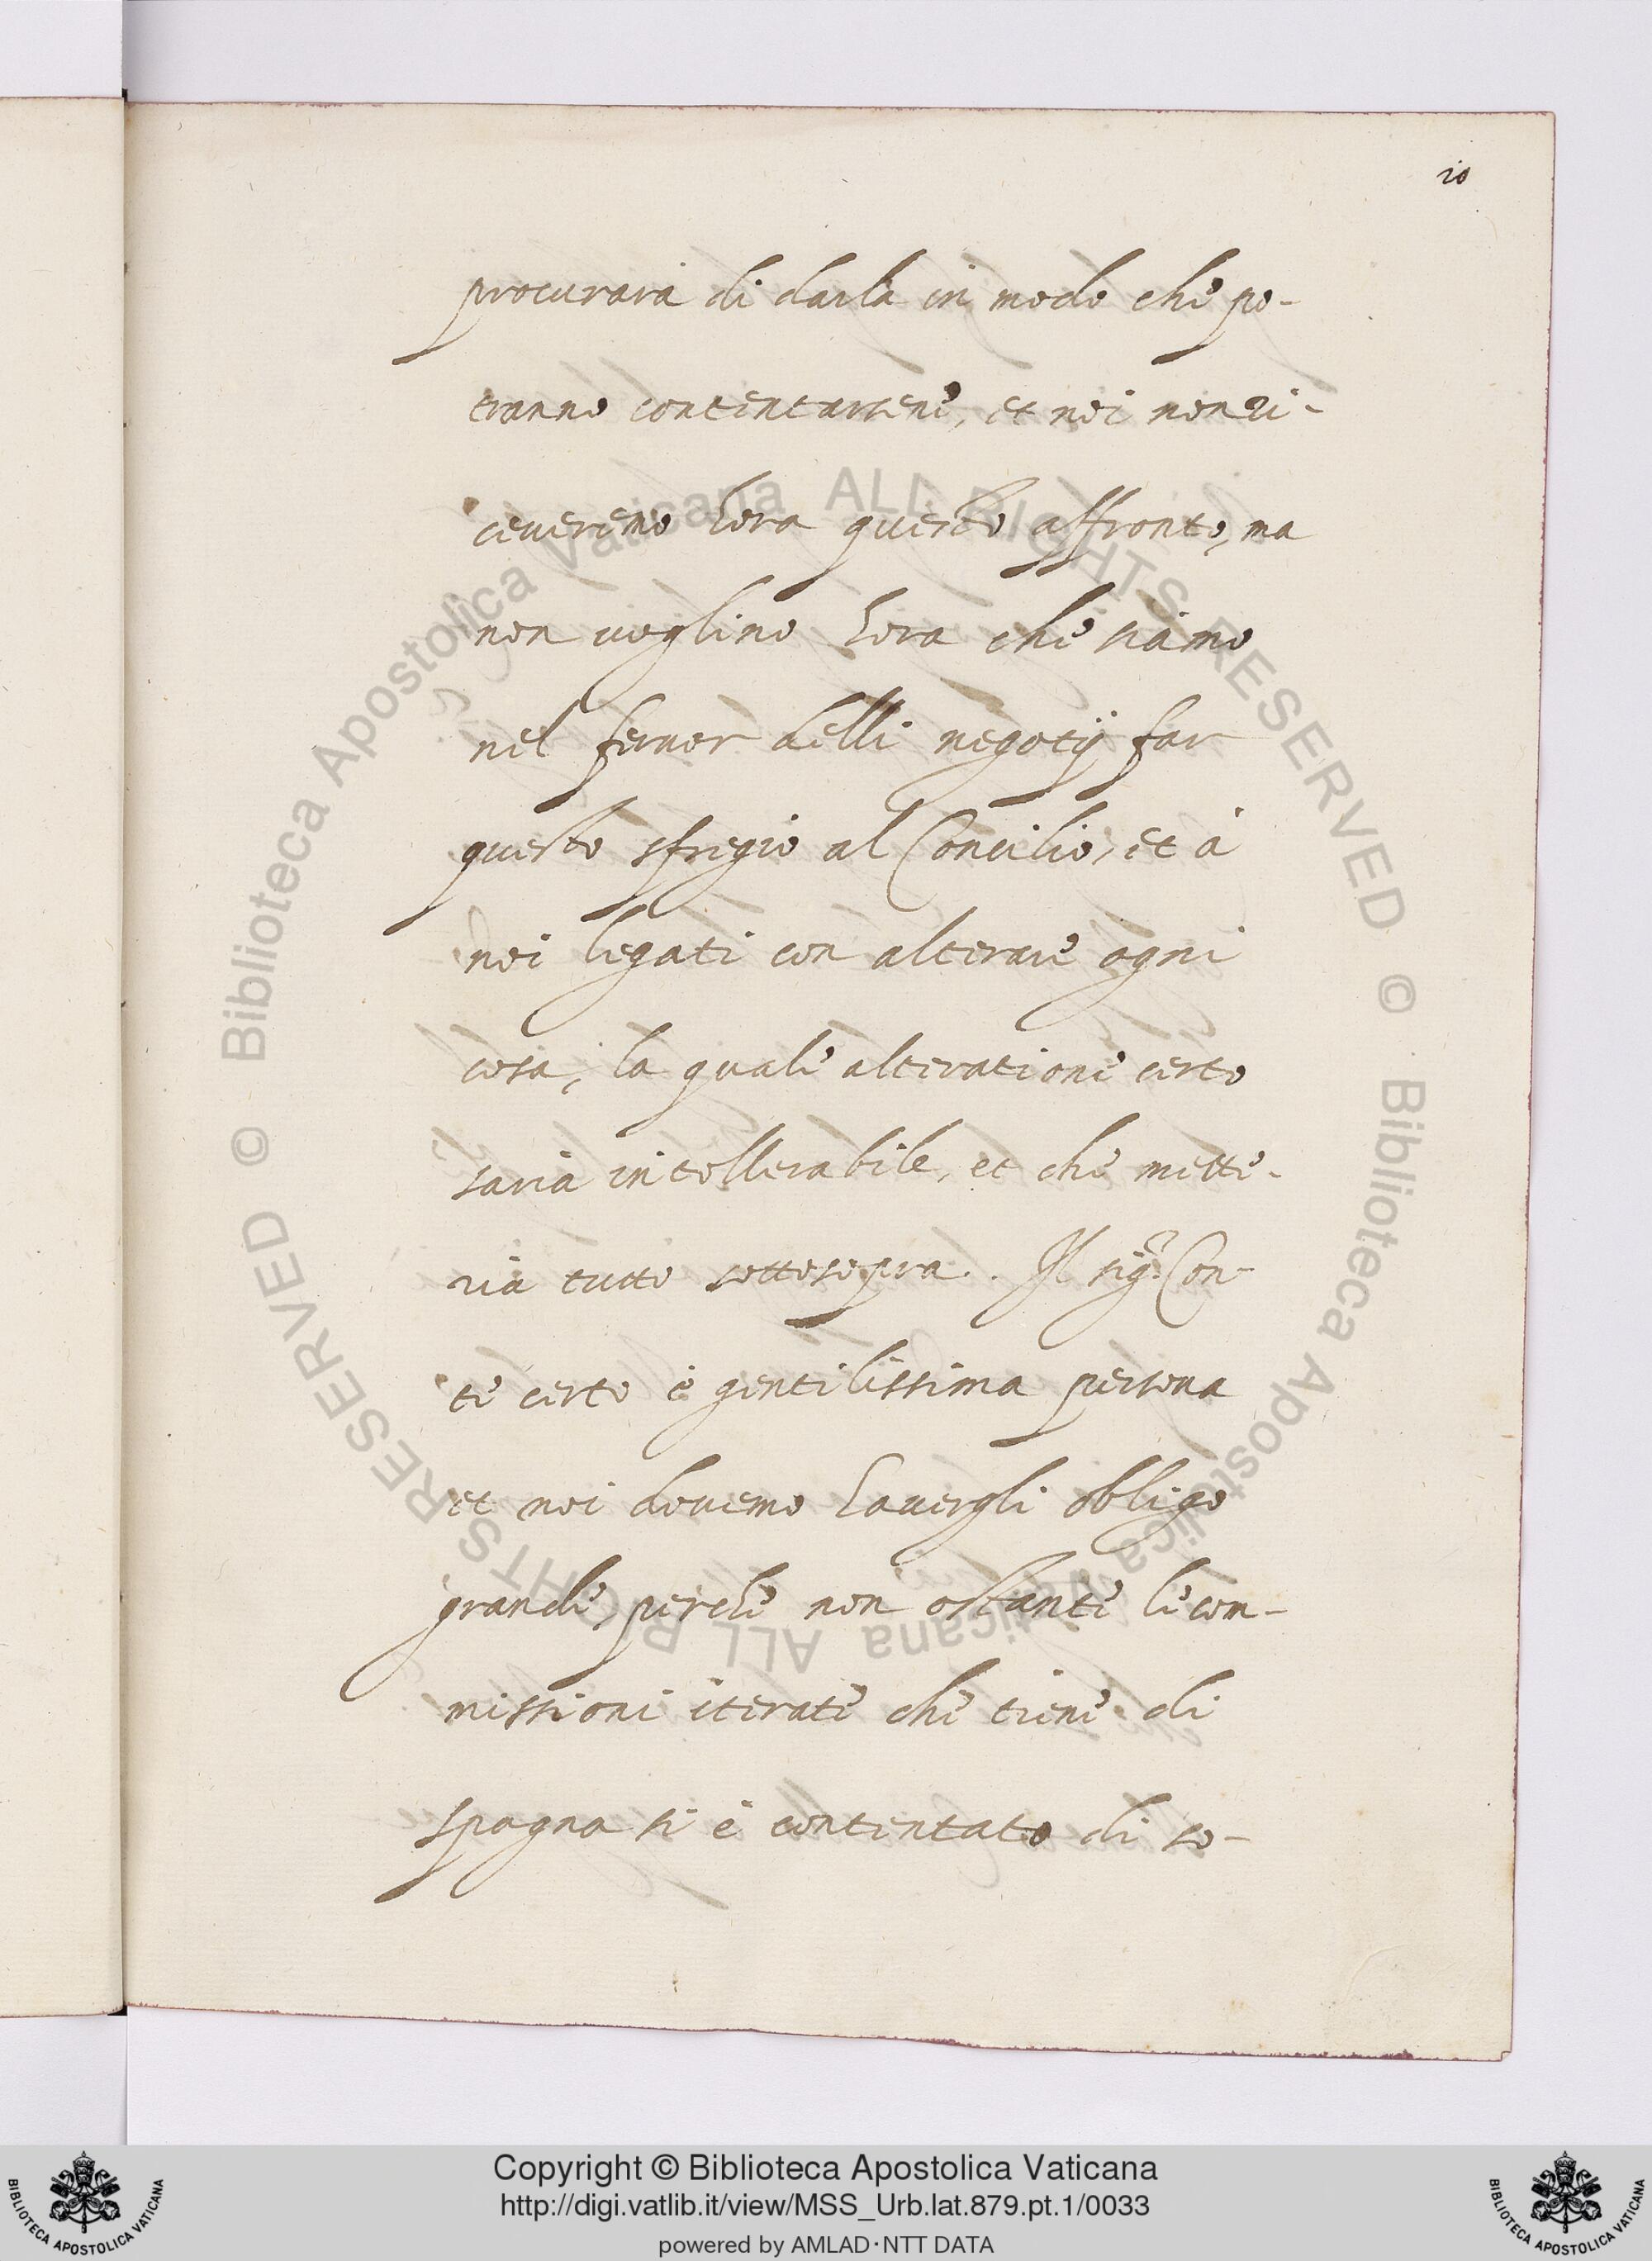 10
procurarà di darla in modo che po-
tranno contentarsene, et noi non ri-
ceveremo hora questo affronto, ma
non voglino hora che siamo
nel fervor delli negotij far
questo sfregio al Concilio, et à
noi legati con alterare ogni
cosa, la quale alteratione certo
saria intollerabile, et che mette-
ria tutto sottosopra. Il sig.r Con-
te certo è gentilissima persona
et noi dovemo havergli obligo
grande, perche non ostante le com-
missioni iterate che tiene di
spagna si è contentato di so-
© Biblioteca Apostolica Vaticana ALL RIGHTS RESERVED © Biblioteca Apostolica Vaticana ALL RIGHTS RESERVED
Copyright © Biblioteca Apostolica Vaticana
http://digi.vatlib.it/view/MSS_Urb.lat.879.pt.1/0033
powered by AMLAD·NTT DATA
BIBLIOTECA APOSTOLICA VATICANA
BIBLIOTECA APOSTOLICA VATICANA